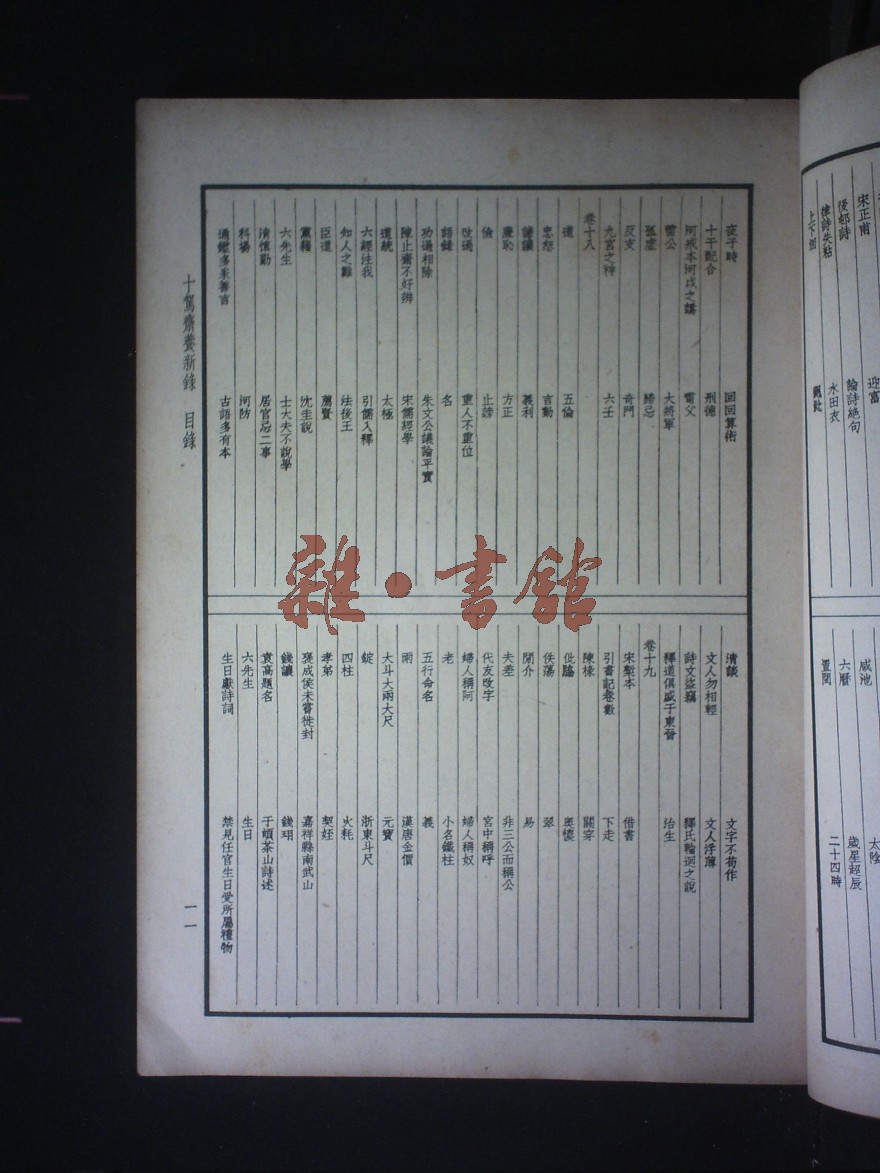 夜子時 回回算術
十干配合 刑德
河戒本河戍之譌 雷父
雷公 大將軍
孤虛 歸忌
反支 奇門
九宮之神 六壬
卷十八
道 五倫
忠恕 言動
謙讓 義利
廉恥 方正
儉 止謗
改過 重人不重位
語錄 名
功過相除 朱文公議論平實
陳止齋不好辨 宋儒經學
道統 太極
六經注我 引儒入釋
知人之難 法後王
臣道 薦賢
黨籍 沈圭說
六先生 士大夫不說學
清慎勤 居官忌二事
科場 河防
通鑑多采善言 古語多有本
清談 文字不苟作
文人勿相輕 文人浮薄
詩文盜竊 釋氏輪迴之說
釋道俱盛于東晉 治生
卷十九
宋槧本 借書
引書記卷數 下走
陳椽 關穿
仳脇 奧憹
佚蕩 翠
閒介 易
夫差 非三公而稱公
代友改字 宮中稱呼
婦人稱阿 婦人稱奴
老 小名鐵柱
五行命名 義
兩 漢唐金價
大斗大兩大尺 元寶
錠 浙東斗尺
四柱 火耗
孝弟 契姪
褒成侯未嘗徙封 嘉祥縣南武山
錢讓 錢珝
袁高題名 于頔茶山詩述
六先生 生日
生日獻詩詞 禁見任官生日受所屬禮物
十駕齋養新錄 目錄 一一
雜·書館
宋正甫 迎富
後邨詩 論詩絕句
律詩失粘 水田衣
太陰
咸池 歲星超辰
六曆 二十四時
置閏